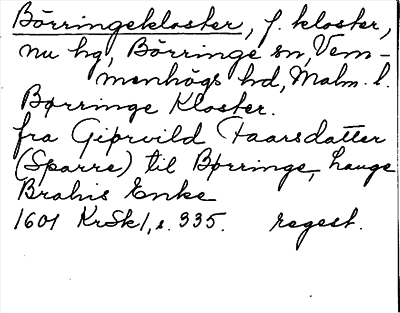 Börringekloster, f. kloster,
nu hg, Börringe sn, Vem-
menhögs hd, Malm. l.
Børringe Kloster.
fra Giørvild Faarsdatter
(Sparre) til Børringe, Lauge
Brahis Enke
1601 KrSk 1, s. 335. regest.